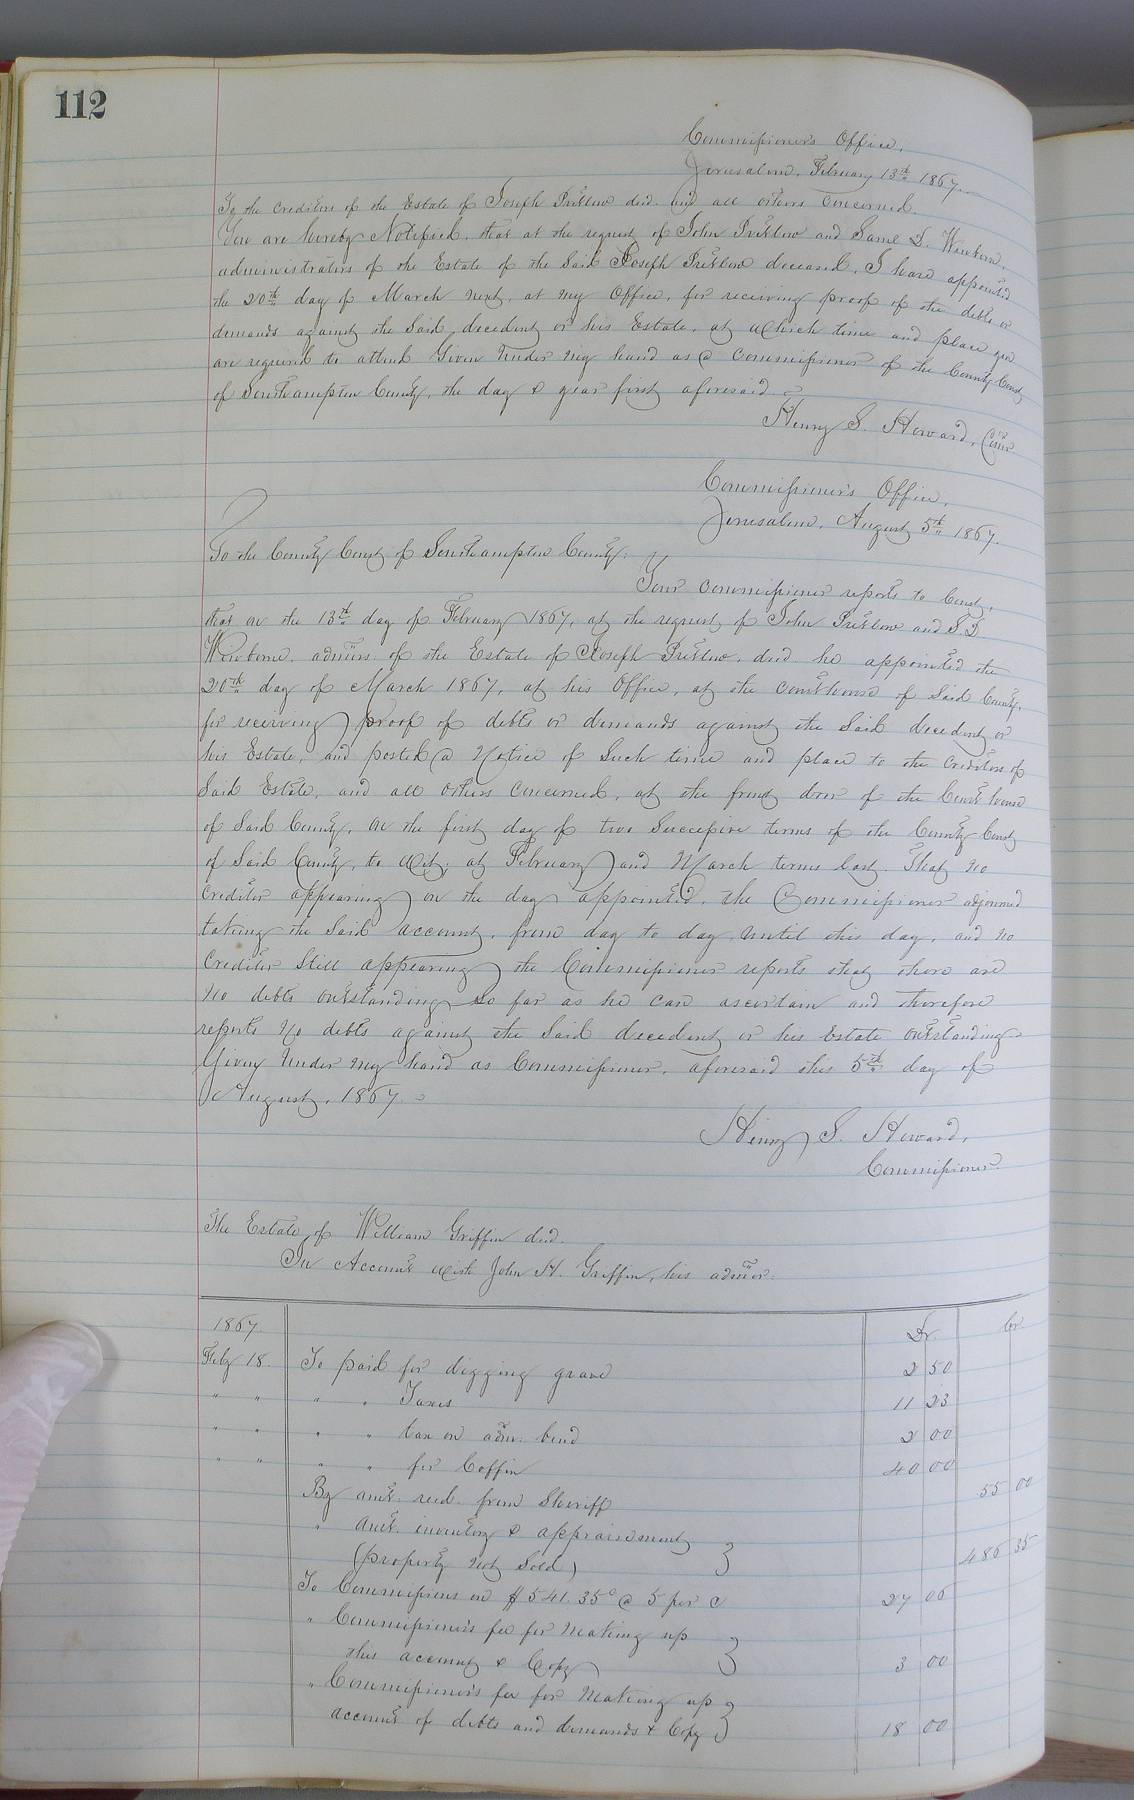 112
Commissioner's Office,
Jerusalem, February 13th 1867.
To the Creditors of the Estate of Joseph Pretlow decd. and all others concerned.
You are hereby Notified, that at the request of John Pretlow and Saml D. Winborne,
administrators of the Estate of the Said Joseph Pretlow deceased, I have appointed
the 20th day of March next, at my Office, for receiving proof of the debts or
demands against the Said decedent or his Estate, at which time and place you
are required to attend. Given Under my hand as a Commissioner of the County Court
of Southampton County, the day & year first aforesaid.
Henry S. Howard, Comr
Commissioner's Office,
Jerusalem, August 5th 1867.
To the County Court of Southampton County:
Your Commissioner reports to Court,
that on the 13th day of February 1867, at the request of John Pretlow and S. D.
Winborne, admors. of the Estate of Joseph Pretlow, decd he appointed the
20th day of March 1867, at his Office, at the Courthouse of Said County,
for receiving proof of debts or demands against the Said decedent or
his Estate, and posted a Notice of Such time and place to the Creditors of
Said Estate, and all others Concerned, at the front door of the Court house
of Said County, on the first day of two Successive terms of the County Court
of Said County, to wit; at February and March terms last. That no
Creditor appearing on the day appointed, the Commissioner adjourned
taking the Said account, from day to day, until this day, and no
Creditor Still appearing the Commissioner reports that there are
no debts outstanding so far as he can ascertain and therefore
reports No debts against the Said decedent or his Estate outstanding.
Given Under my hand as Commissioner, aforesaid this 5th day of
August, 1867.
Henry S. Howard,
Commissioner.
The Estate of William Griffin decd.
In Account with John H. Griffin, his admor:
1867. Dr. Cr.
Feby 18. To paid for digging grave 2 50
" " " " Taxes 11 23
" " " " tax on adm. bond 2 00
" " " " for Coffin 40 00
By amt. recd. from Sheriff 55 00
" amt. inventory & appraisement
(property not Sold) 486 35
To Commissions on $541.35c @ 5 per c 27 06
" Commissioner's fee for Making up
this account & Copy 3 00
" Commissioner's fee for Making up
account of debts and demands & Copy 18 00